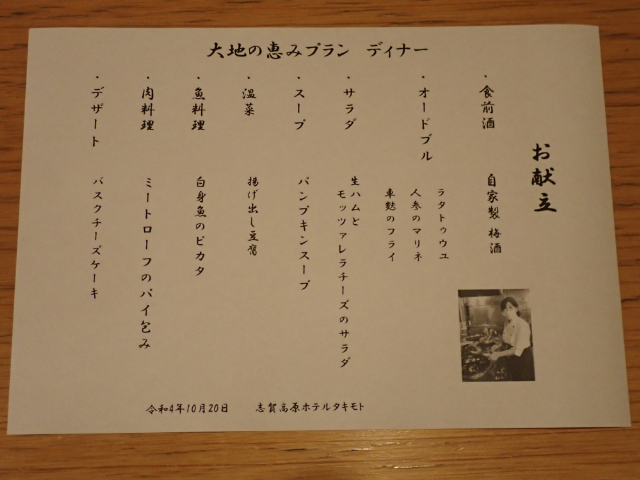 大地の恵みプラン ディナー
お献立
・食前酒 自家製 梅酒
・オードブル ラタトゥウユ
人参のマリネ
車麩のフライ
・サラダ 生ハムと
モッツァレラチーズのサラダ
・スープ パンプキンスープ
・温菜 揚げ出し豆腐
・魚料理 白身魚のピカタ
・肉料理 ミートローフのパイ包み
・デザート バスクチーズケーキ
令和4年10月20日 志賀高原ホテルタキモト